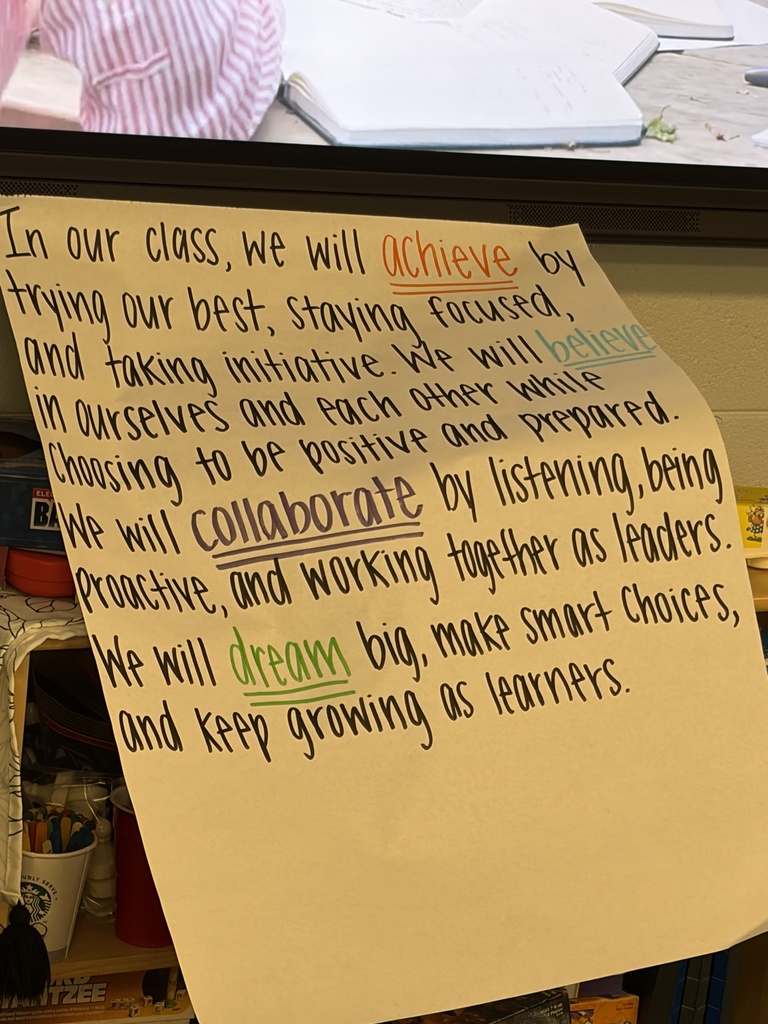 In our class, we will achieve by
trying our best, staying focused,
and taking initiative. We will believe
in ourselves and each other while
choosing to be positive and prepared.
We will collaborate by listening, being
proactive, and working together as leaders.
We will dream big, make smart choices,
and keep growing as learners.